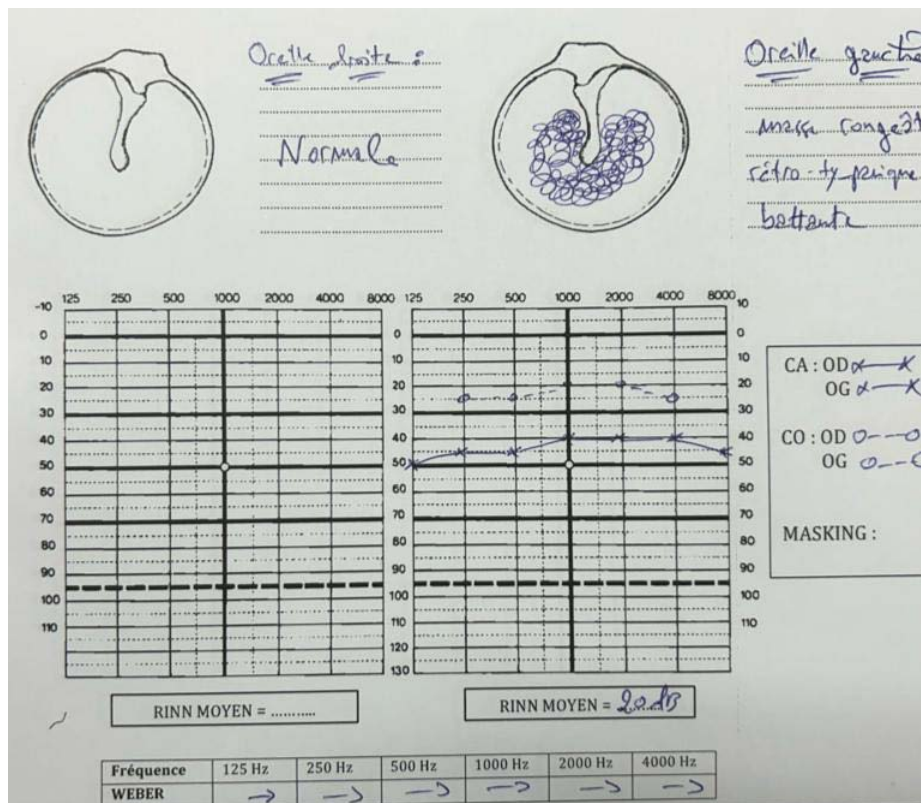 Oreille droite :
Normale
Oreille gauche
masse rougeât
rétro-tympanique
battante
125 250 500 1000 2000 4000 8000
-10
0
10
20
30
40
50
60
70
80
90
100
110
125 250 500 1000 2000 4000 8000
0
10
20
30
40
50
60
70
80
90
100
110
130
10
0
10
20
30
40
50
60
70
80
90
100
110
CA : OD
OG
CO : OD
OG
MASKING :
RINN MOYEN = ..........
RINN MOYEN = 20 dB
Fréquence 125 Hz 250 Hz 500 Hz 1000 Hz 2000 Hz 4000 Hz
WEBER → → → → → →